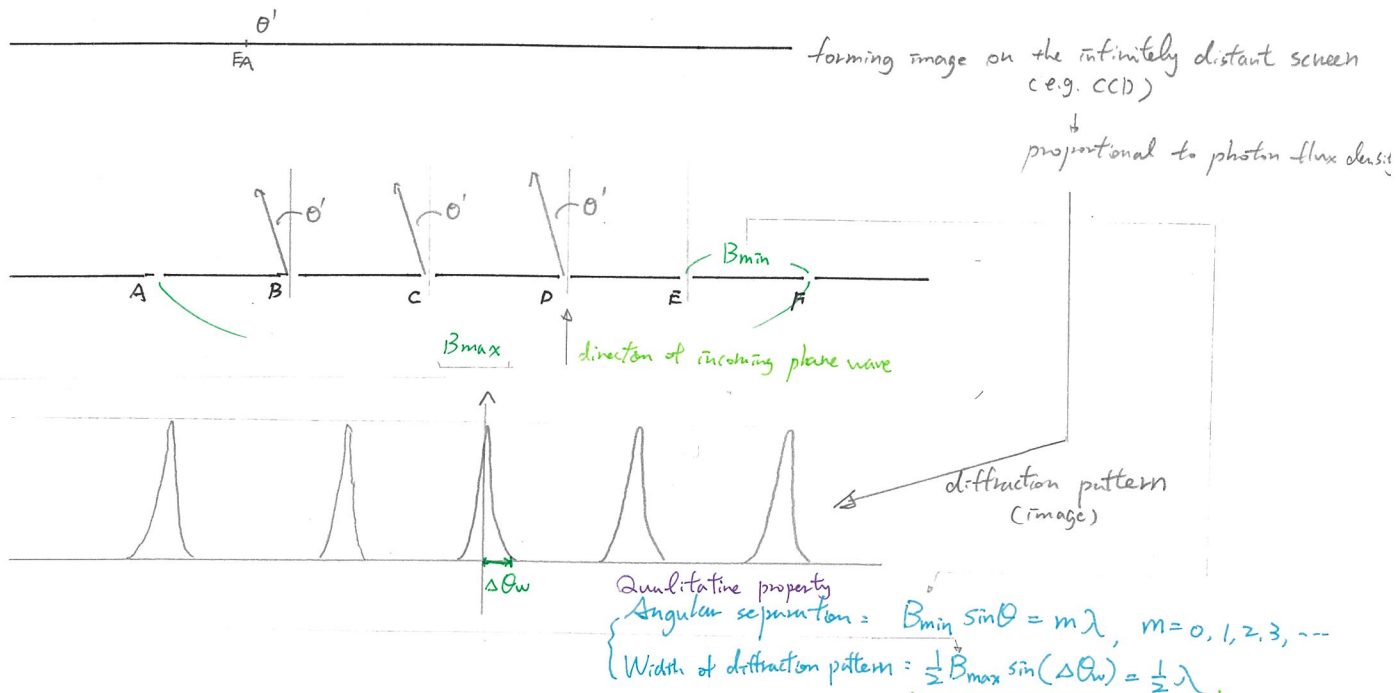 θ'
EA
forming image on the infinitely distant screen
(e.g. CCD)
proportional to photon flux densi
θ' θ' θ'
Bmin
A B C D E F
Bmax
direction of incoming plane wave
diffraction pattern
(image)
Δθw
Qualitative property
Angular separation = Bmin sinθ = mλ, m=0,1,2,3,---
Width of diffraction pattern = ½ Bmax sin(Δθw) = ½ λ